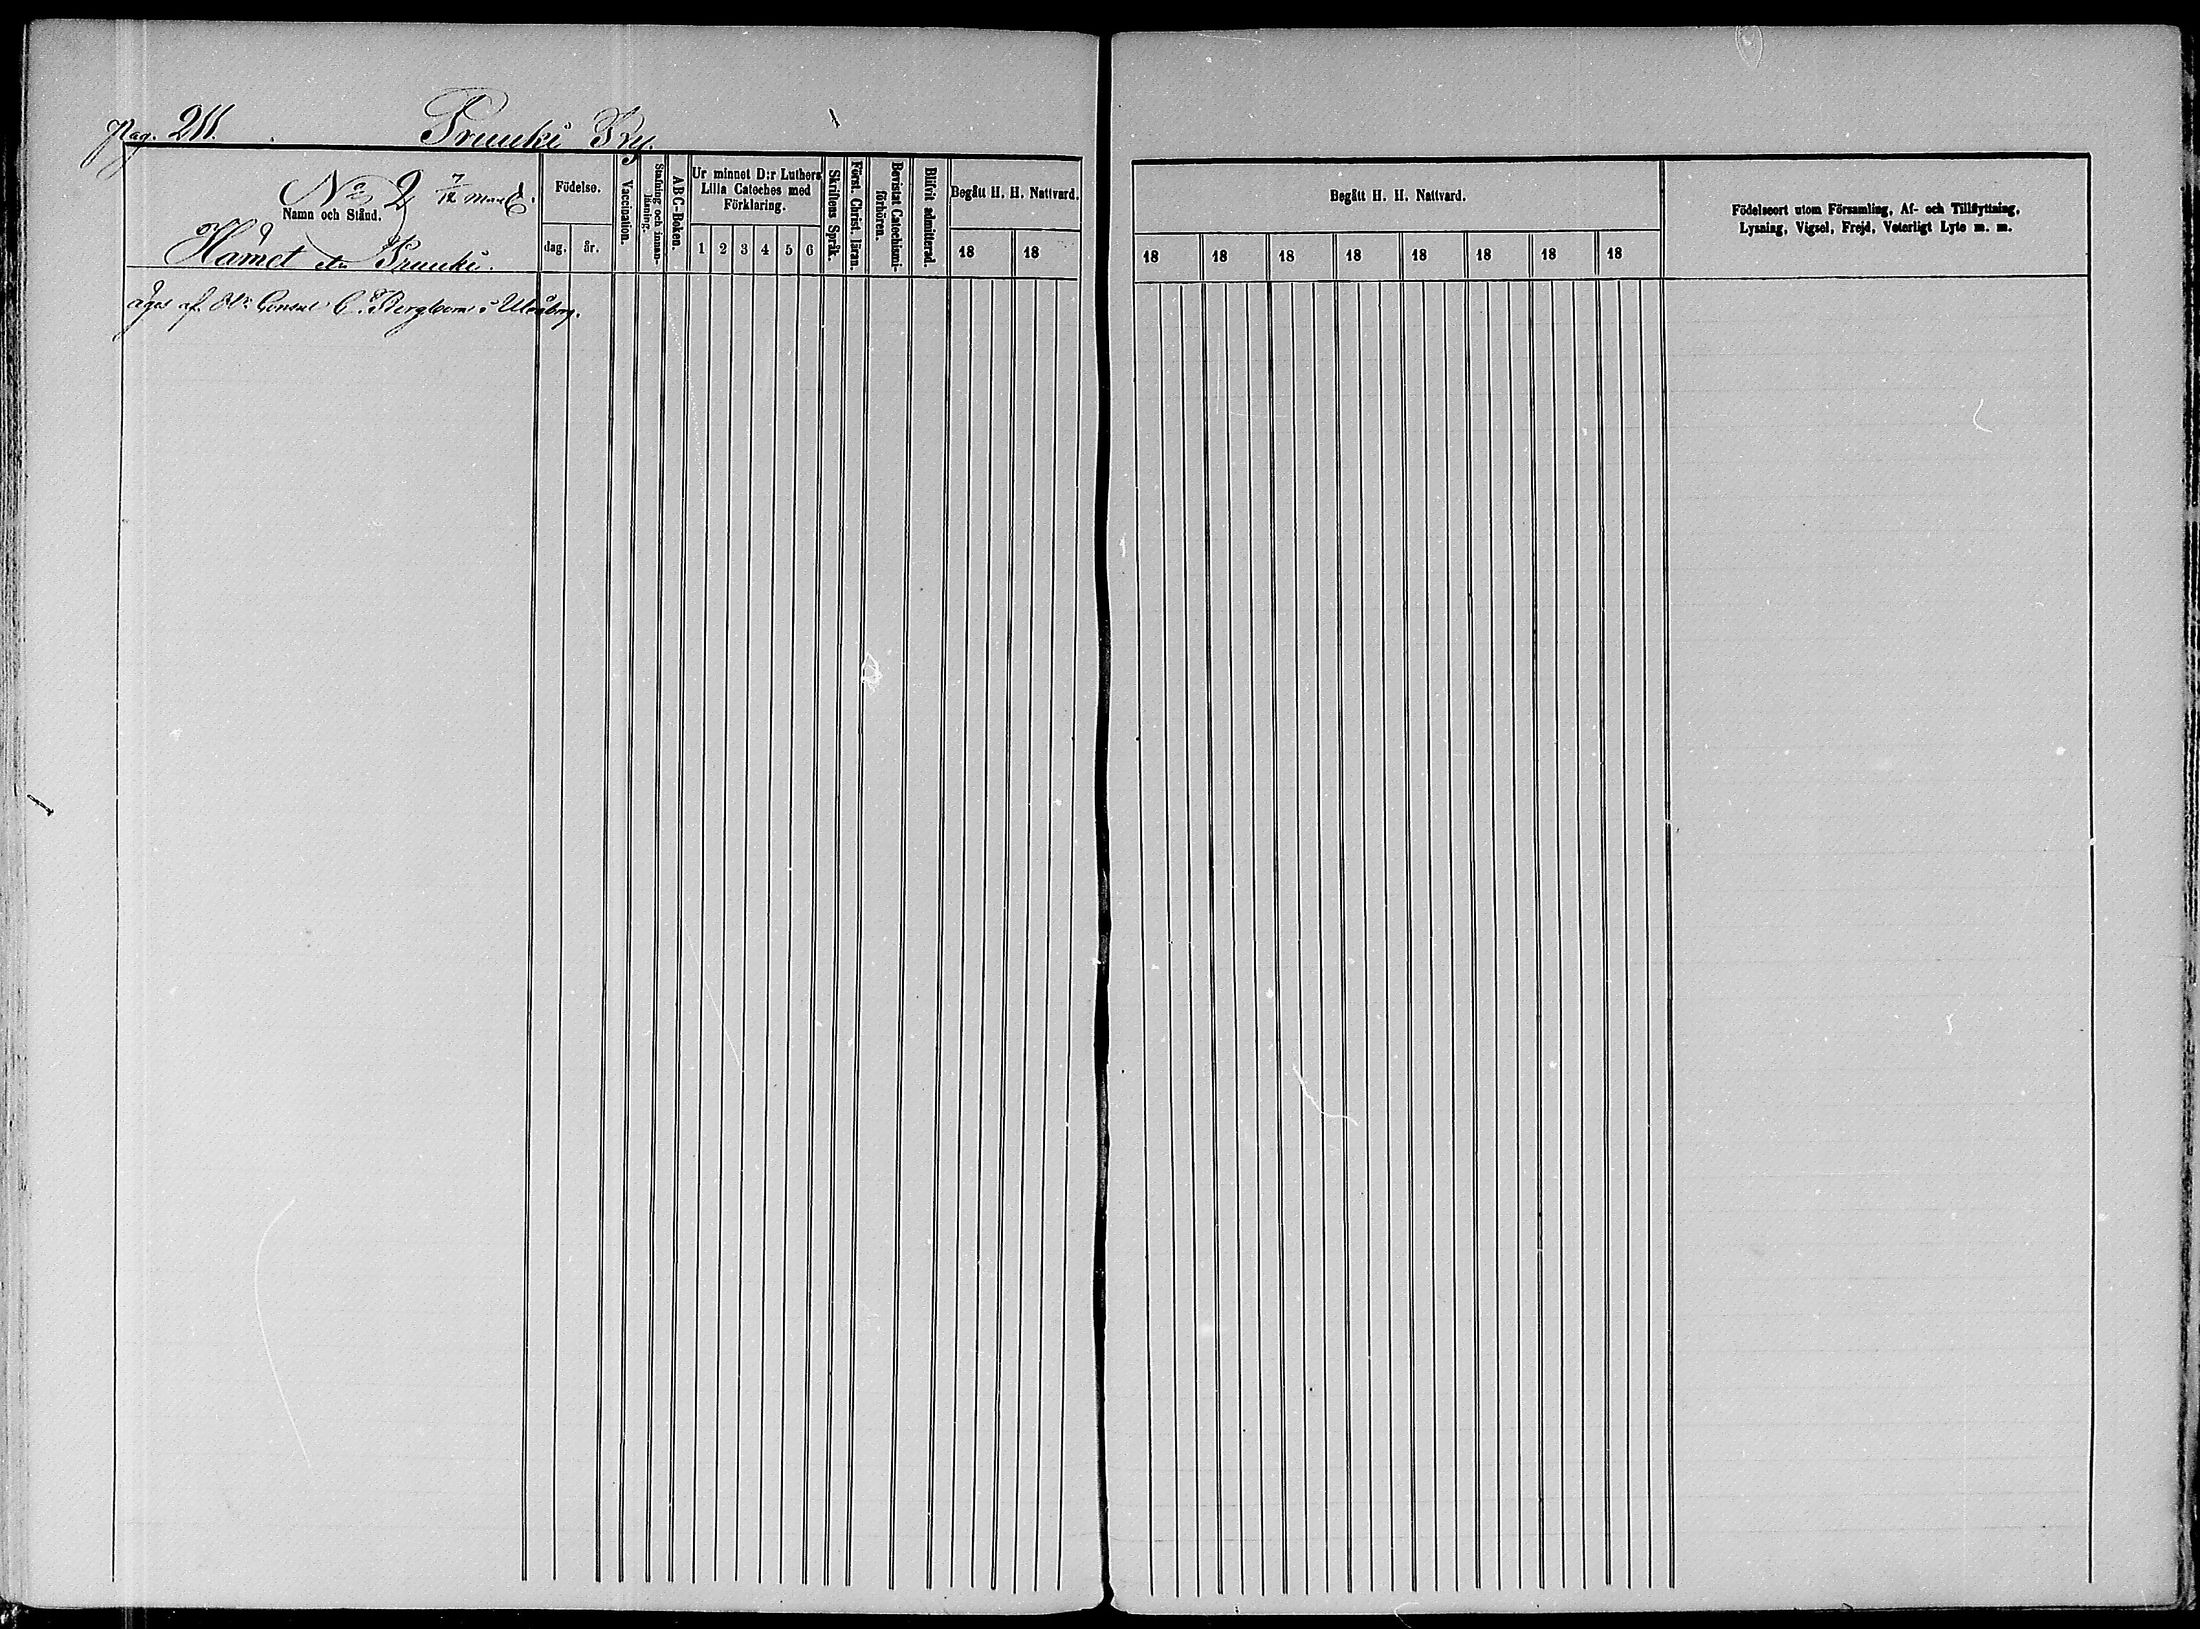 Pag. 211.
Pruuki By.
No 2 7/12 Mantl.
Namn och Stånd.
Hamet eller Pruuki.
Födelse.
dag. år.
Vaccination.
Stafning och innanläsning.
ABC-Boken.
Ur minnet D:r Luthers
Lilla Cateches med
Förklaring.
1 2 3 4 5 6
Skriftens Språk.
Först. Christ. läran.
Bevistat Catechismi-
förhören.
Blifvit admitterad.
Begått H. H. Nattvard.
18 18
Begått H. H. Nattvard.
18 18 18 18 18 18 18 18
Födelseort utom Församling, Af- och Tillflyttning,
Lysning, Vigsel, Frejd, Veterligt Lyte m. m.
äges af Consul C. Bergbom i Uleåborg.